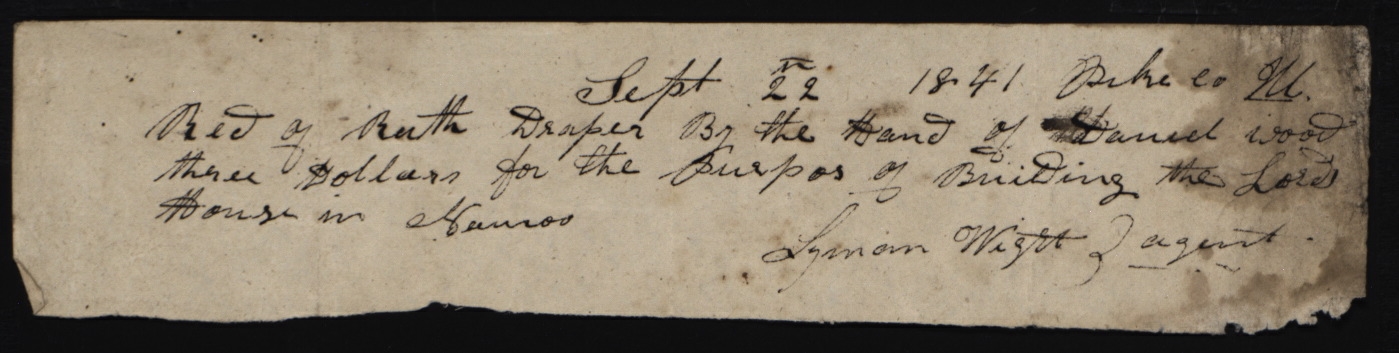 Sept 22th 1841 Pike co Ill.
Recd of Ruth Draper By the Hand of Daniel wood
three Dollars for the Purpos of Building the Lords
House in Nauvoo
Lyman Wight } agent